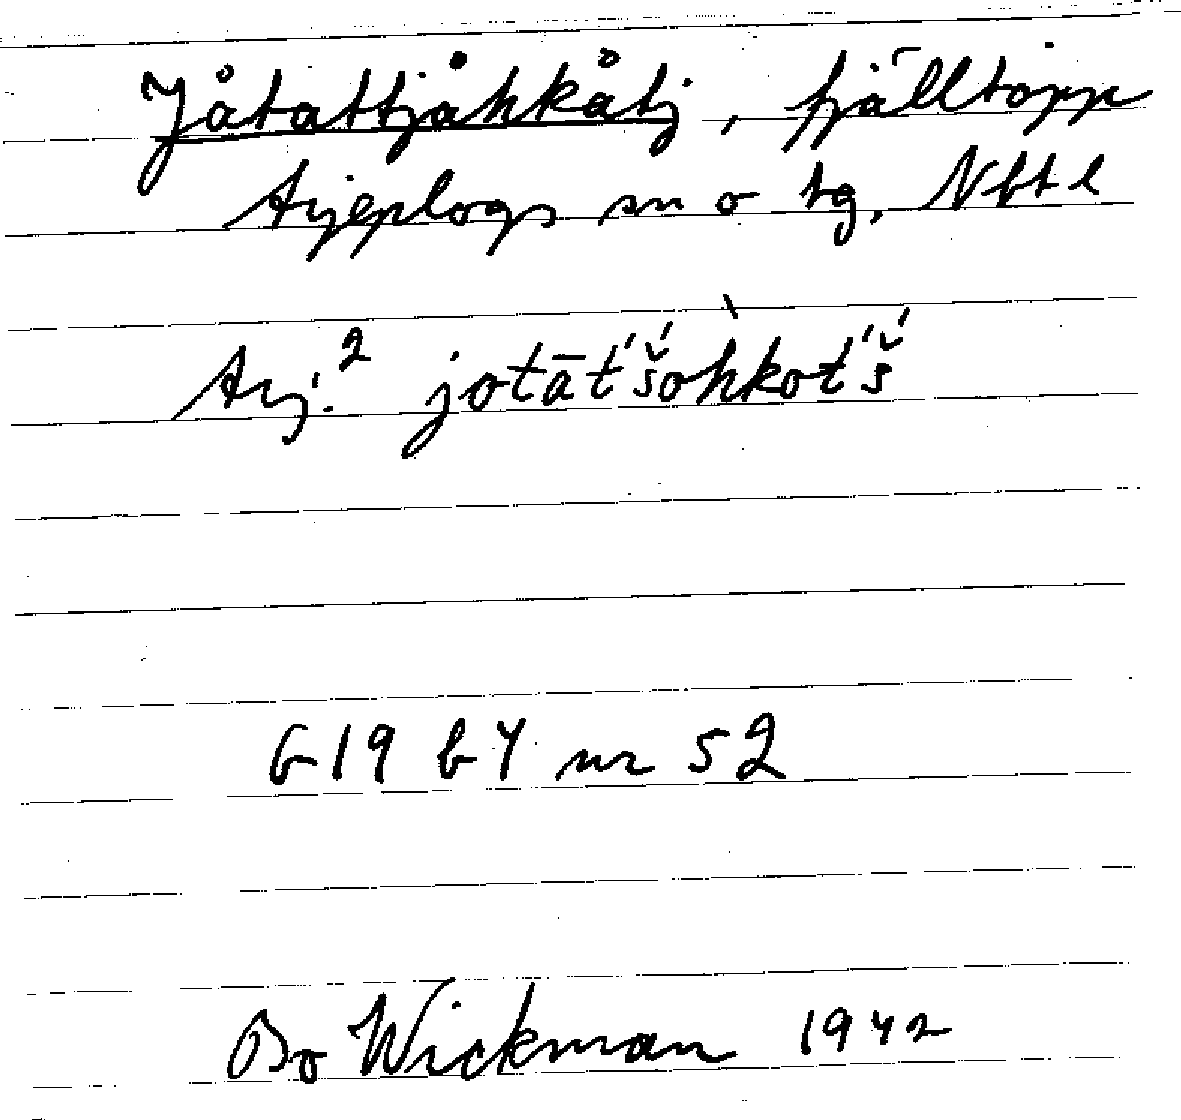 Jåtattjåhkåtj, fjälltopp
Arjeplogs sn o tg, Nbtl
Arj.² jotāt́š́oh̀kot́š́
G19 b4 nr 52
Bo Wickman 1942